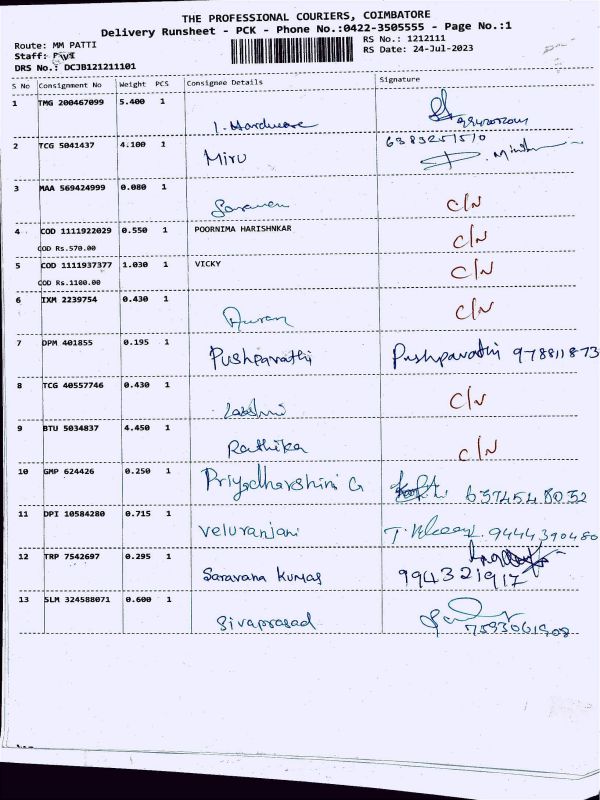 THE PROFESSIONAL COURIERS, COIMBATORE
Delivery Runsheet - PCK - Phone No.:0422-3505555 - Page No.:1
Route: MM PATTI
RS No.: 1212111
Staff:
RS Date: 24-Jul-2023
DRS No.: DCJB121211101
S No Consignment No Weight PCS Consignee Details Signature
1 TMG 200467099 5.400 1
1. Hardware
2 TCG 5041437 4.100 1 6383251510
Miru
3 MAA 569424999 0.080 1
Saravanan C/N
4 COD 1111922029 0.550 1 POORNIMA HARISHNKAR C/N
COD Rs.570.00
5 COD 1111937377 1.030 1 VICKY C/N
COD Rs.1100.00
6 IXM 2239754 0.430 1 C/N
7 DPM 401855 0.195 1
Pushparathi Pushpavathi 978811873
8 TCG 40557746 0.430 1 C/N
Laxshmi
9 BTU 5034837 4.450 1
Rathika C/N
10 GMP 624426 0.250 1
Priyadharshini G 6374548052
11 DPI 10584280 0.715 1
Veluranjani 9444390480
12 TRP 7542697 0.295 1
Saravana Kumar 9943221917
13 SLM 324588071 0.600 1
Sivaprasad 7593061908